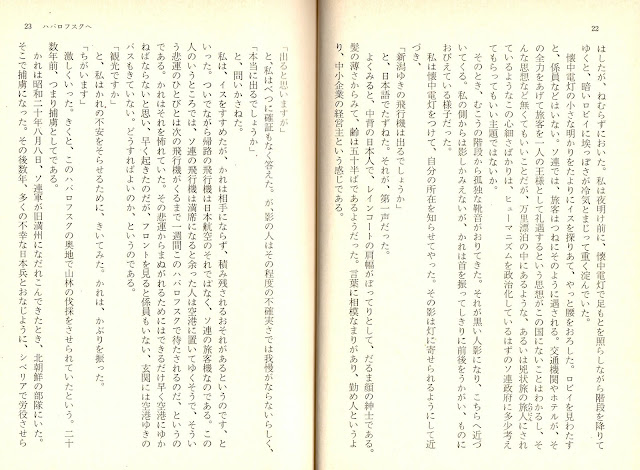 22
はしたが、ねむらずにおいた。私は夜明け前に、懐中電灯で足もとを照らしながら階段を降りて
ゆくと、暗いロビイに埃っぽさが冷気とまじって重く淀んでいた。
懐中電灯の小さな明かりをたよりにイスを探りあて、やっと腰をおろした。ロビイを見わたす
と、係員などはいない。ソ連では、旅客はつねにそのように遇される。交通機関やホテルが、そ
の全力をあげて旅客を一人の王様として礼遇するという思想がこの国にないことはわかるし、そ
んな思想など無くてもいいことだが、万里漂泊の中にあるような、あるいは兇状旅の旅人にされ
ているようなこの心細さばかりは、ヒューマニズムを政治化しているはずのソ連政府に多少考え
てもらってもいい主題ではないか。
そのとき、むこうの階段から孤独な靴音がおりてきた。それが黒い人影になり、こちらへ近づ
いてくる。私の側からは影しかみえないが、かれは首を振ってしきりに前後をうかがい、ものに
おびえている様子だった。
私は懐中電灯をつけて、自分の所在を知らせてやった。その影は灯に寄せられるようにして近
づき、
「新潟ゆきの飛行機は出るでしょうか」
と、日本語でたずねた。それが、第一声だった。
よくみると、中背の日本人で、レインコートの肩幅がぼってりとして、だるま顔の紳士である。
髪の薄さからみて、齢は五十半ばであるようだった。言葉に相模なまりがあり、勤め人というよ
り、中小企業の経営主という感じである。
23 ハバロフスクへ
「出ると思いますが」
と、私はべつに確証もなく答えた。が、影の人はその程度の不確実さでは我慢がならないらしく、
「本当に出るでしょうか」
と、問いかさねた。
私は、イスをすすめたが、かれは相手にならず、積み残されるおそれがあるというのです、と
いった。ついでながら帰路の飛行機は日本航空のそれではなく、ソ連の旅客機なのである。この
人のいうところでは、ソ連の飛行機は満席になると余った人は空港に置いてゆくそうで、そうい
う悲運のひとびとは次の飛行機がくるまで一週間このハバロフスクで待たされるのだ、というの
である。かれはそれを怖れていた。その悲運からまぬがれるためにはできるだけ早く空港にゆか
ねばならないと思い、早く起きたのだが、フロントを見ると係員もいない、玄関には空港ゆきの
バスもきていない。どうすればよいのか、というのである。
「観光ですか」
と、私はかれの不安をそらせるために、きいてみた。かれは、かぶりを振った。
「ちがいます」
激しくいった。きくと、このハバロフスクの奥地で山林の伐採をさせられていたという。二十
数年前、つまり捕虜としてである。
かれは昭和二十年八月八日、ソ連軍が旧満州になだれこんできたとき、北朝鮮の部隊にいた。
そこで捕虜になった。その後数年、多くの不幸な日本兵とおなじように、シベリアで労役させら